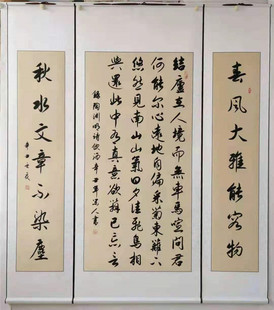 春風大雅能容物
結廬在人境而無車馬喧問君
何能尔心遠地自偏采菊東籬下
悠然見南山山氣日夕佳飛鳥相
與還此中有真意欲辯已忘言
錄陶淵明詩飲酒辛丑年人書
秋水文章不染塵
辛丑年